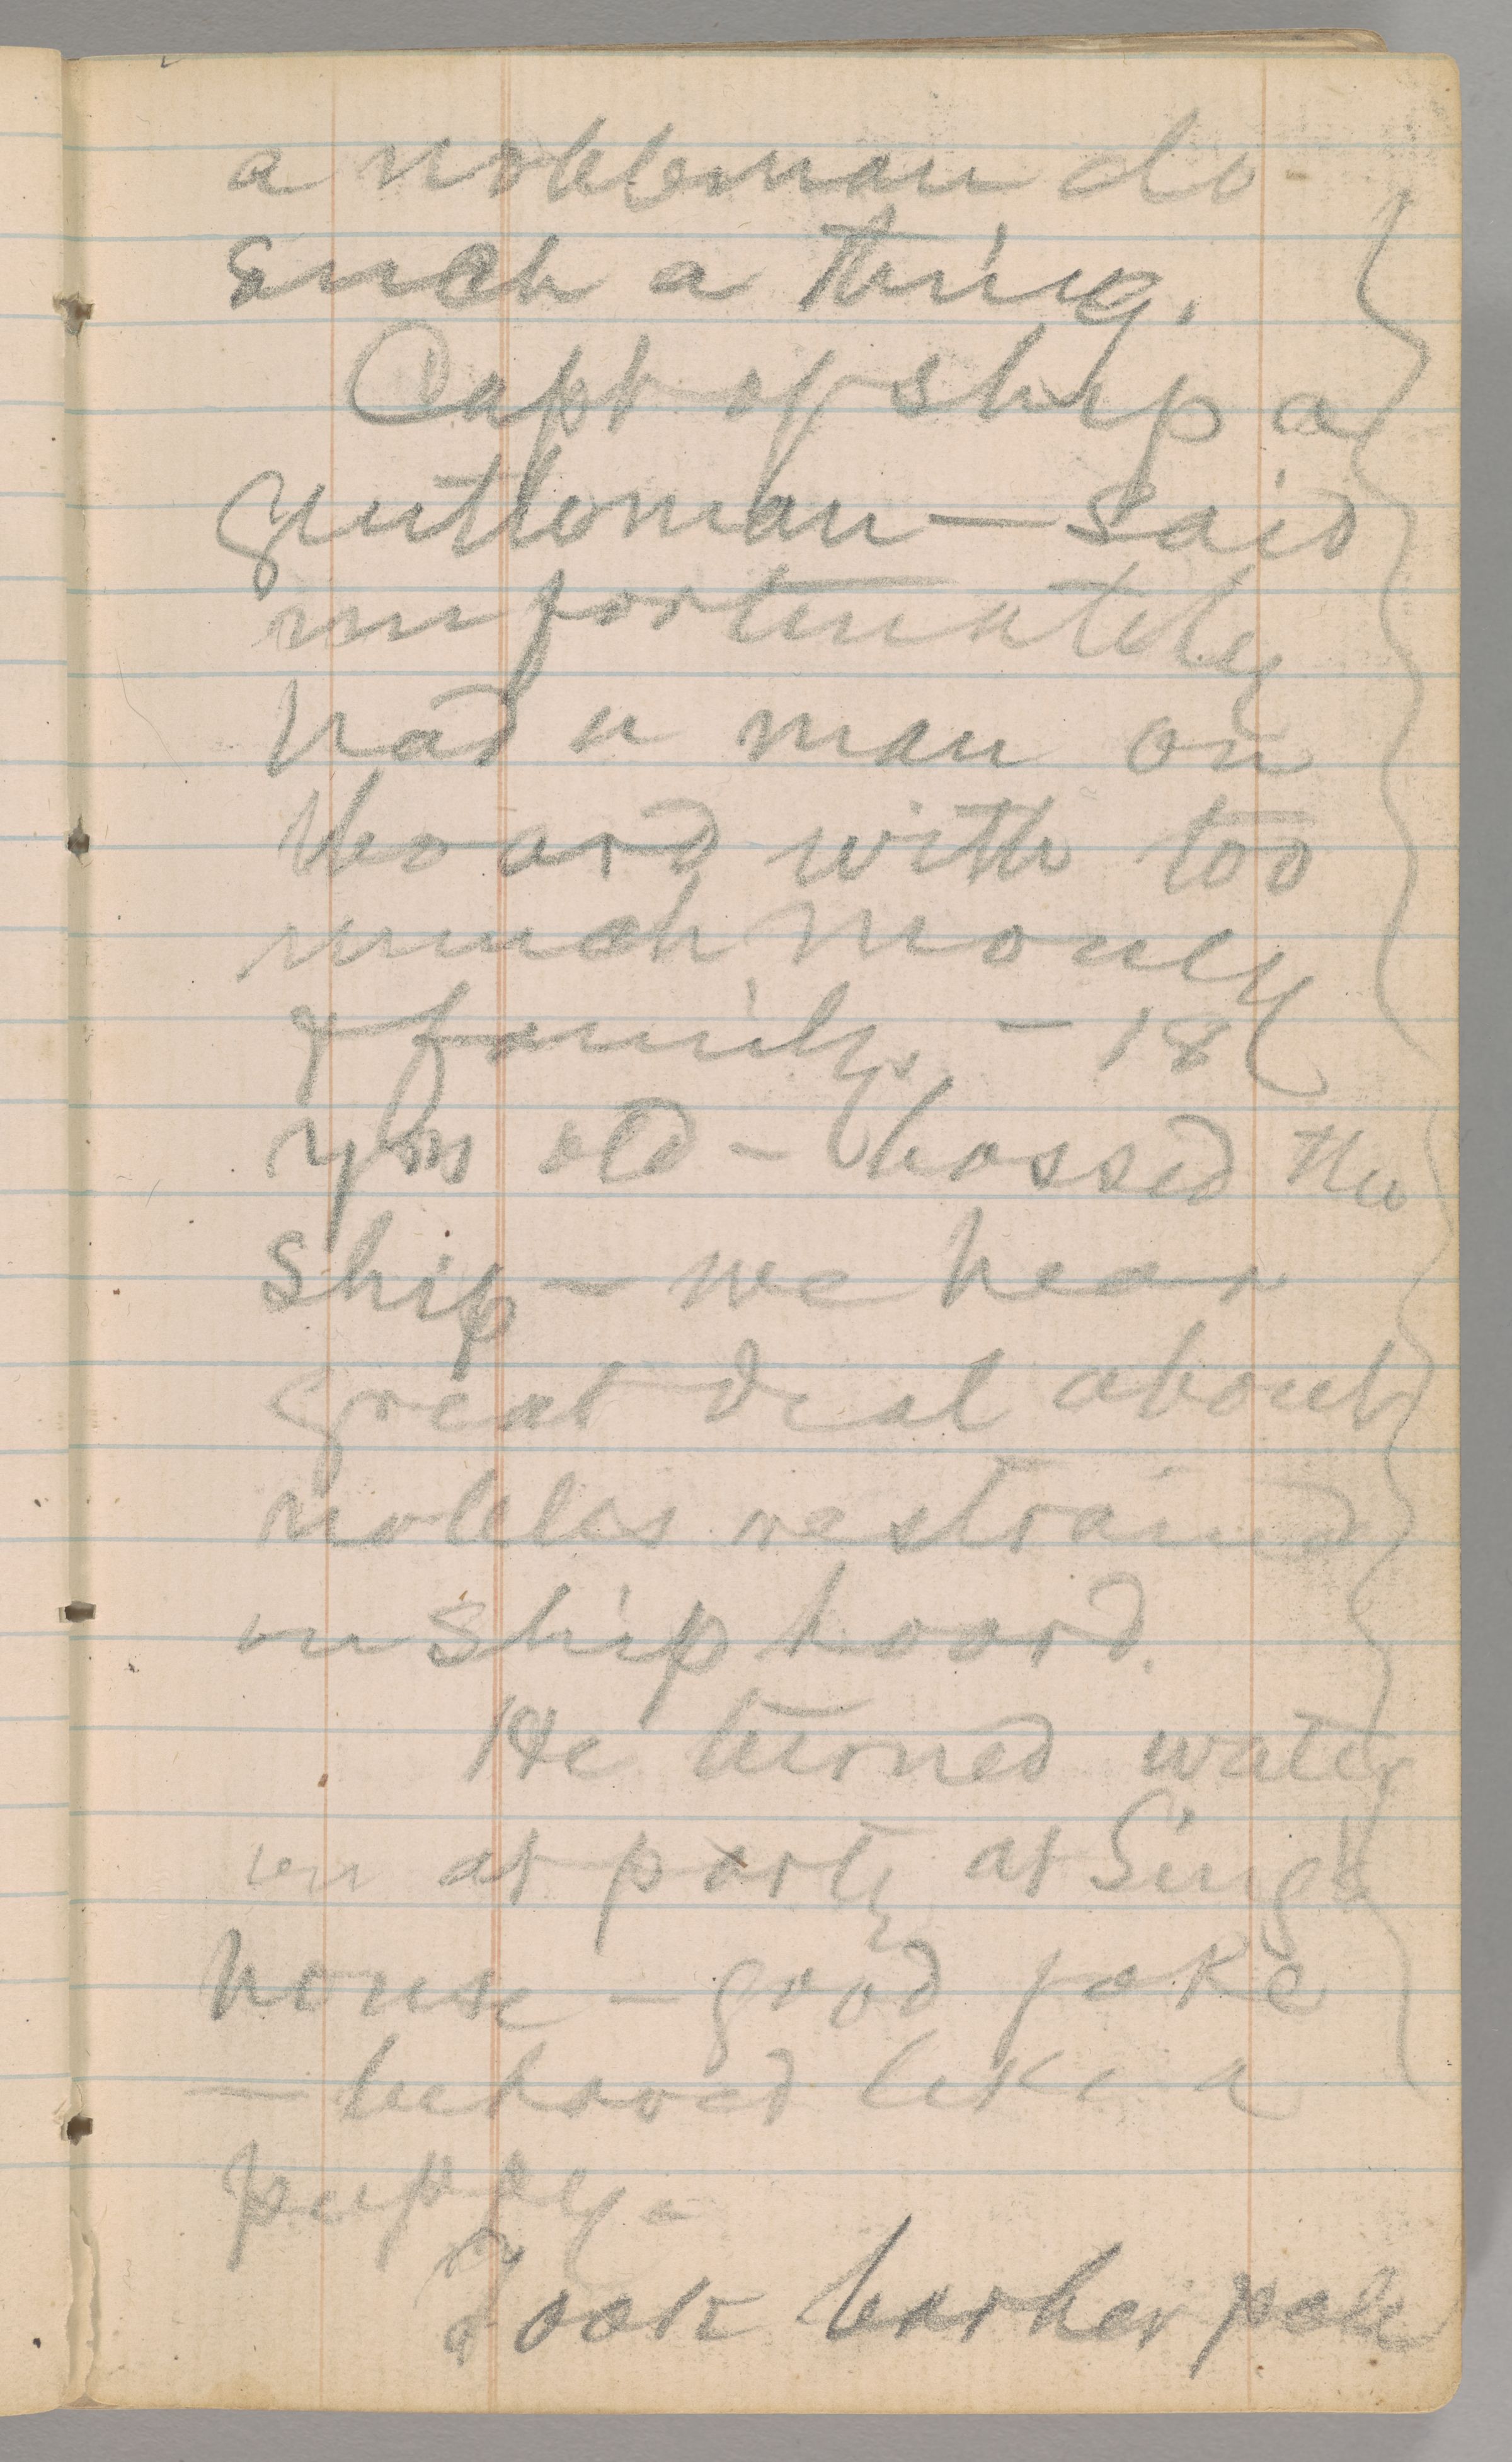 a nobleman do
such a thing.
Capt of ship a
gentleman — said
unfortunately
had a man on
board with too
much money
& family, – 18
yrs old – bossed the
ship – we hear
great deal about
nobles restrained
on ship board.
He turned water
on at party at
house – good joke
— behaved like a
puppy –
Took barber pole